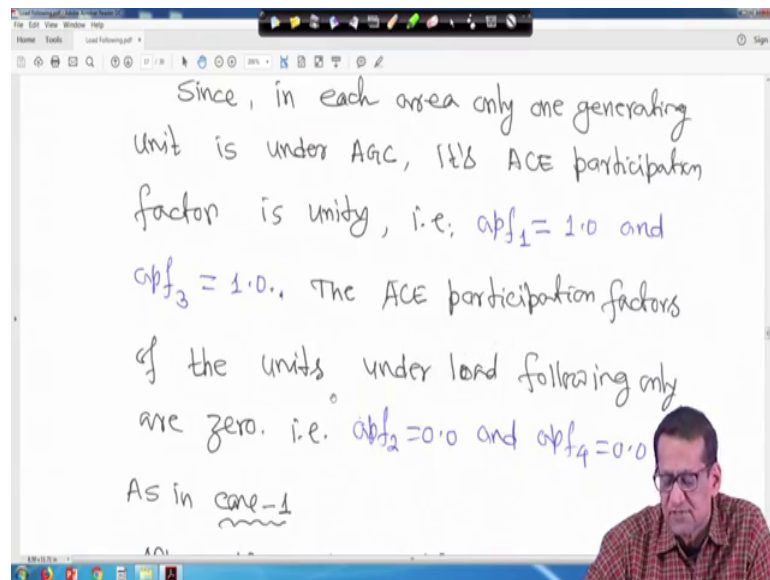 Load Following.pdf - Adobe Acrobat Reader DC
File Edit View Window Help
Home Tools Load Following.pdf × Sign
17 / 35
Since, in each area only one generating
unit is under AGC, It's ACE participation
factor is unity, i.e; apf₁ = 1.0 and
apf₃ = 1.0.. The ACE participation factors
of the units under load following only
are zero. i.e. apf₂ = 0.0 and apf₄ = 0.0
As in case-1